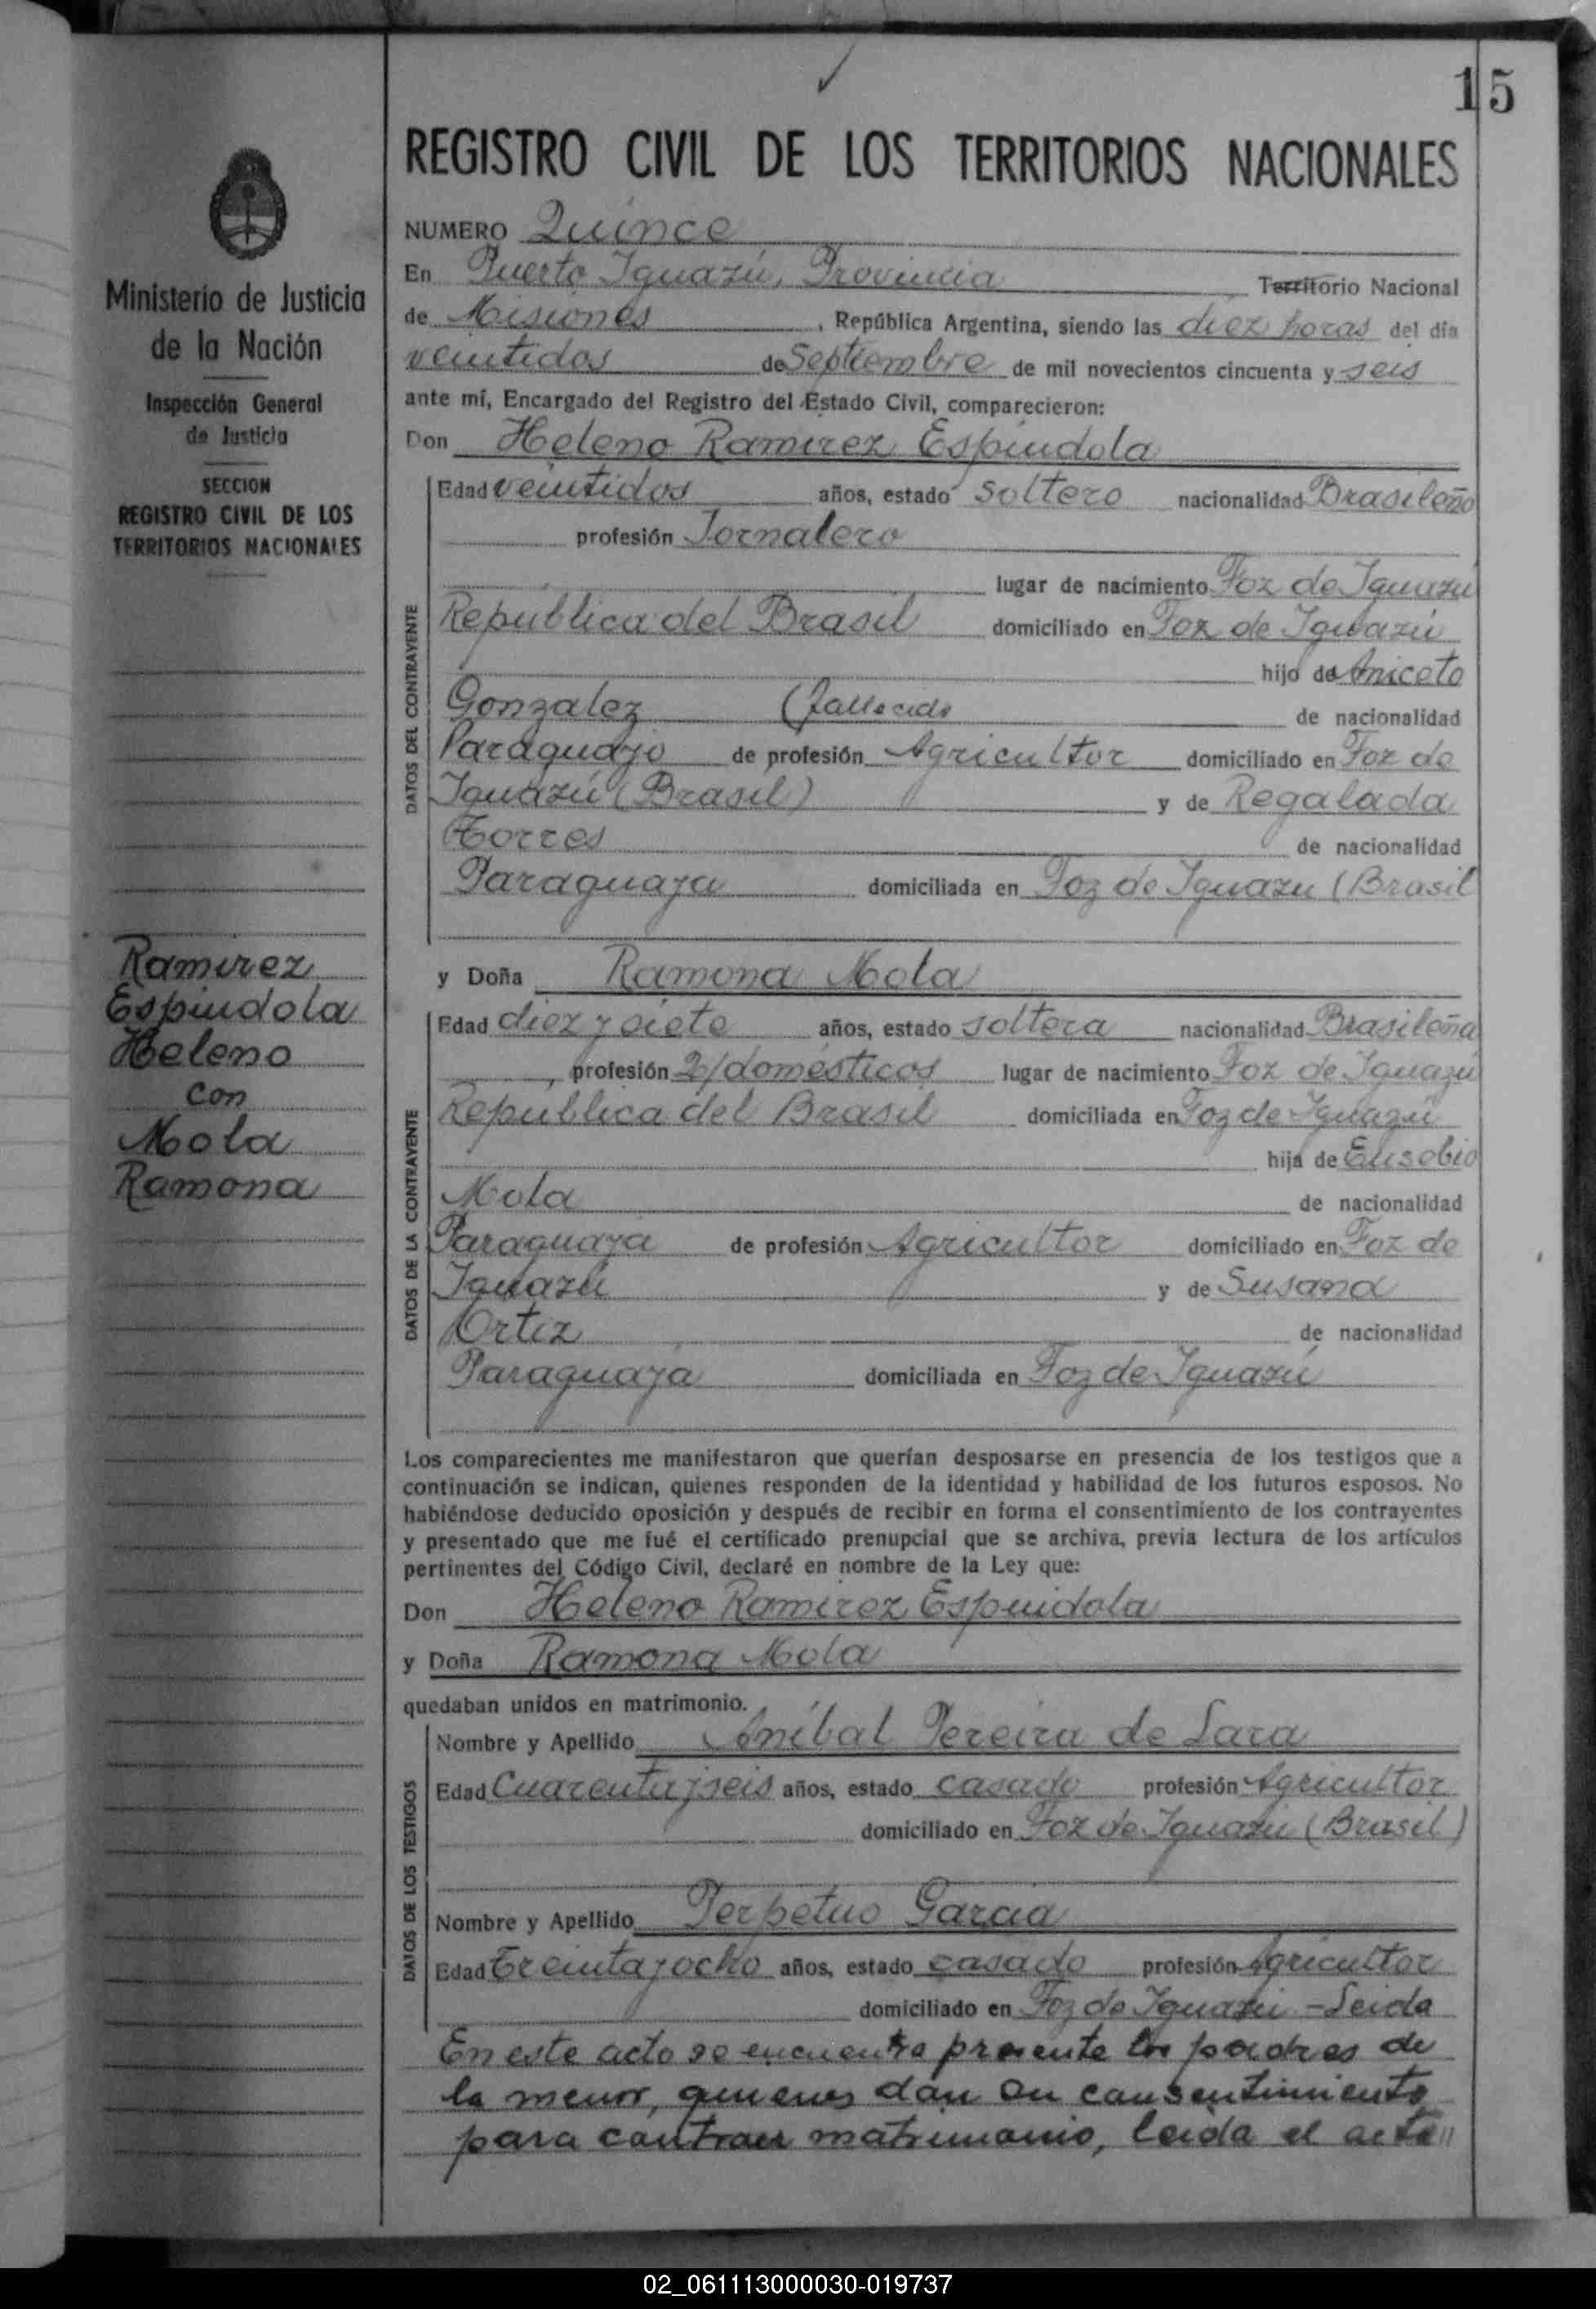 15
REGISTRO CIVIL DE LOS TERRITORIOS NACIONALES
Ministerio de Justicia
de la Nación
Inspección General
de Justicia
SECCION
REGISTRO CIVIL DE LOS
TERRITORIOS NACIONALES
Ramirez
Espindola
Heleno
con
Mola
Ramona
NUMERO Quince
En Puerto Iguazú, Provincia Territorio Nacional
de Misiones, República Argentina, siendo las diez horas del día
veintidos de Septiembre de mil novecientos cincuenta y seis
ante mí, Encargado del Registro del Estado Civil, comparecieron:
Don Heleno Ramirez Espindola
DATOS DEL CONTRAYENTE
Edad veintidos años, estado soltero nacionalidad Brasileño
profesión Jornalero
lugar de nacimiento Foz de Iguazú
República del Brasil domiciliado en Foz de Iguazú
hijo de Aniceto
Gonzalez (fallecido de nacionalidad
Paraguayo de profesión Agricultor domiciliado en Foz de
Iguazú (Brasil) y de Regalada
Torres de nacionalidad
Paraguaya domiciliada en Foz de Iguazu (Brasil
y Doña Ramona Mola
DATOS DE LA CONTRAYENTE
Edad diez y siete años, estado soltera nacionalidad Brasileña
, profesión Q/domésticos lugar de nacimiento Foz de Iguazú
República del Brasil domiciliada en Foz de Iguazú
hija de Eusebio
Mola de nacionalidad
Paraguaya de profesión Agricultor domiciliado en Foz de
Iguazú y de Susana
Ortiz de nacionalidad
Paraguaya domiciliada en Foz de Iguazú
Los comparecientes me manifestaron que querían desposarse en presencia de los testigos que a
continuación se indican, quienes responden de la identidad y habilidad de los futuros esposos. No
habiéndose deducido oposición y después de recibir en forma el consentimiento de los contrayentes
y presentado que me fué el certificado prenupcial que se archiva, previa lectura de los artículos
pertinentes del Código Civil, declaré en nombre de la Ley que:
Don Heleno Ramirez Espindola
y Doña Ramona Mola
quedaban unidos en matrimonio.
DATOS DE LOS TESTIGOS
Nombre y Apellido Aníbal Pereira de Lara
Edad Cuarenta y seis años, estado casado profesión Agricultor
domiciliado en Foz de Iguazu (Brasil)
Nombre y Apellido Perpetuo Garcia
Edad Treinta y ocho años, estado casado profesión Agricultor
domiciliado en Foz de Iguazu - Leida
En este acto se encuentra presente los padres de
la menor, quienes dan su consentimiento
para contraer matrimonio, leida el acta //
02_061113000030-019737